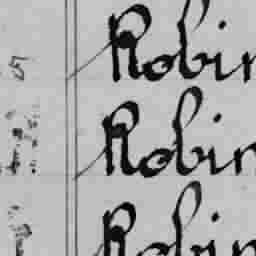 Robin
Robin
Robin